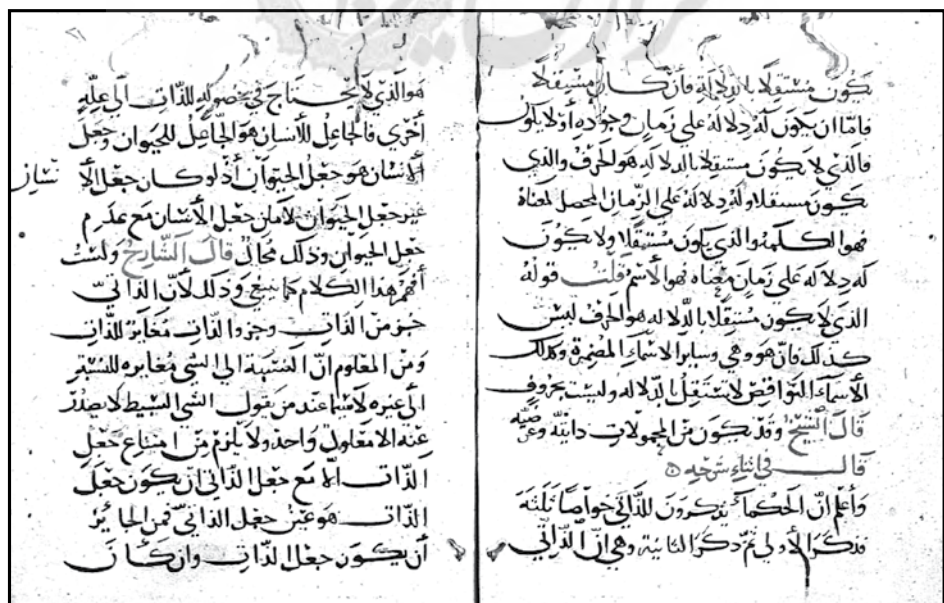 يكون مستقلا بالدلالة فان كان مستقلا
فاما ان يكون له دلالة على زمان وجوده أو لا يكون
فالذي لا يكون مستقلا بالدلالة هو الحرف والذي
يكون مستقلا وله دلالة على الزمان المحصل لمعناه
فهو الكلمة والذي يكون مستقلا ولا يكون
له دلالة على زمان معناه فهو الاسم قلت قوله
الذي لا يكون مستقلا بالدلالة هو الحرف ليس
كذلك فان هو وهي وساير الاسماء المضمرة وكذلك
الاسماء النواقص لا تستقل بالدلالة وليست بحروف
قال الشيخ وقد يكون من المحمولات ذاتية وعرضية
قال في اثناء شرحه
وأعلم ان الحكماء يذكرون للذاتي خواصا ثلثة
فذكر الأولى ثم ذكر الثانية وهي ان الذاتي
هو الذي لا يحتاج في حصوله للذات الى علة
أخرى فالجاعل للأنسان هو الجاعل للحيوان وجعل
الأنسان هو جعل الحيوان أذ لو كان جعل الأنسان
غير جعل الحيوان لأمكن جعل الأنسان مع عدم
جعل الحيوان وذلك محال قال الشارح ولست
أفهم هذا الكلام كما ينبغي وذلك لأن الذاتي
جزء من الذات وجزء الذات مغاير للذات
ومن المعلوم ان النسبة الى الشي مغايره للنسبة
الى غيره لا سيما عند من يقول الشي البسيط لا يصدر
عنه الا معلول واحد ولا يلزم من امتناع جعل
الذات الا مع جعل الذاتي ان يكون جعل
الذات هو عين جعل الذاتي فمن الجايز
أن يكون جعل الذات وان كان